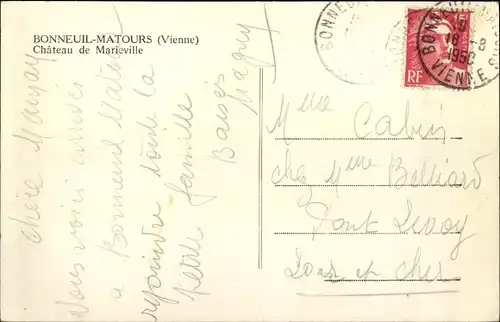 BONNEUIL-MATOURS (Vienne)
Château de Marieville
chère Maman
Nous voici arrivés
a Bonneuil Matours
rejoindre toute la
petite famille
Baisers
BONNEUIL
BONNEUIL
18 -8
1950
VIENNE
RF
Mme Cabin
chez Mme Belliard
Pont Levoy
Loir et Cher